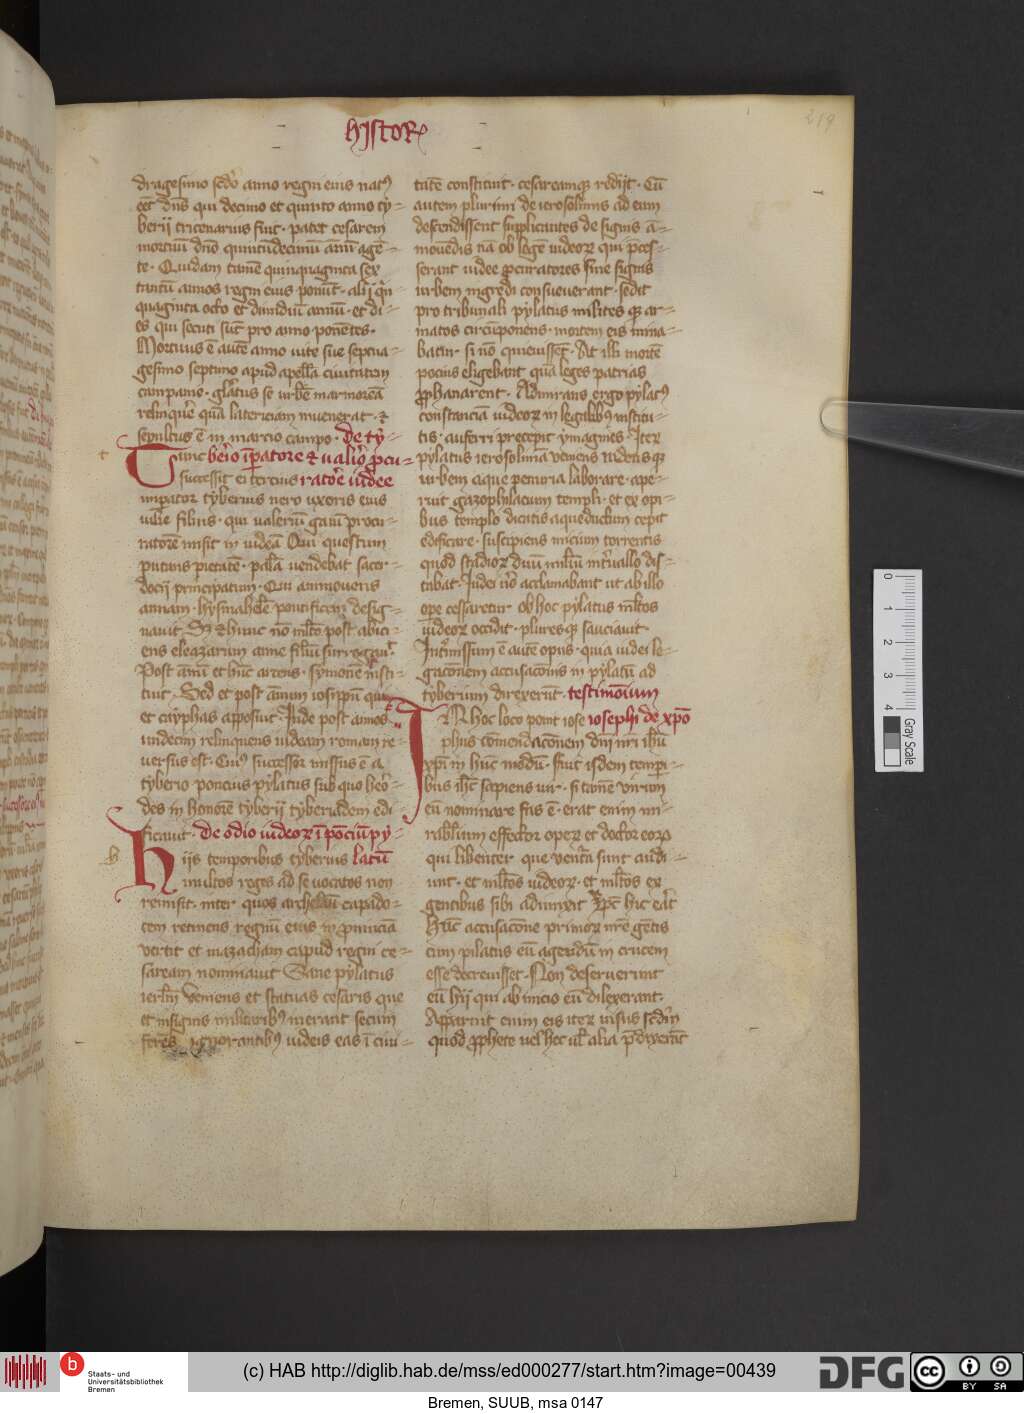 histor
219
dragesimo scdo anno regni eius nat9
eet dns qui decimo et quinto anno ty-
berij tricenarius fuit. patet cesarem
mortuu dno quintudecimu annu agen-
te. Quidam tame quinquaginta sex
tantu annos regni eius ponut. alij qn
quaginta octo et dimidiu annu. et di-
es qui secuti sut pro anno ponetes.
Mortuus e aute anno uite sue septua-
gesimo septimo apud apella ciuitatem
campanie. gloatus se urbe marmorea
relinqure qua latericiam inuenerat. et
sepultus e in marcio campo. de ty-
Tunc berio ipatore et ualio pcu-
successit ei tercius ratore iudee
imperator tyberius nero uxoris eius
iulie filius. qui ualeriu gaiu procu-
ratore misit in iudea Qui questum
putans pietate. pala uendebat sacer-
docij principatum. Qui ammoueris
annam. hysmahele pontificem desig-
nauit. Sz et hunc no mlto post abici-
ens eleazarum anne filiu surrogauit.
Post annu et huc arcens. symone insti-
tuit. Sed et post annum iosippu qui
et cayphas apposuit. Inde post annos
undecim relinquens iudeam romam re-
uersus est. Cui9 successor missus e a
tyberio poncius pylatus sub quo hero-
des in honore tyberij tyberiadem edi-
ficauit. De odio iudeor i ponciu py-
Hijs temporibus tyberius latu
multos reges ad se uocatos non
remisit. inter quos archelau capado-
cem retinens regnu eius in prouincia
vertit et mazacham capud regni ce-
saream nominauit Sane pylatus
ierlm veniens et statuas cesaris que
et insignis militarib9 inerant secum
feres ignorantib9 iudeis eas i ciui-
tate constituit. cesareamq redijt. Cu
autem plurimi de ierosolimis ad eum
descendissent supplicantes de signis a-
mouedis na ob lege iudeor qui pces-
serant iudee pcuratores sine signis
urbem ingredi consueuerant. sedit
pro tribunali pylatus milites q ar-
matos circuponens. mortem eis mina-
batur. si no quieuisset. At illi morte
pocius eligebant qua leges patrias
pphanarent. Admirans ergo pylat9
constancia iudeor in legalib9 institu-
tis. auferri precepit ymagines. Iter
pylatus ierosolima veniens uidens q
urbem aque penuria laborare. ape-
ruit gazophylacium templi. et ex opi-
bus templo dicatis aqueductum cepit
edificare. suscipiens inicium torrentis
quod stadior duu miliu intuallo dis-
tabat. Iudei uo acclamabant ut ab illo
ope cessaretur ob hoc pylatus mltos
iudeor occidit. plures q sauciauit.
Intmissum e autem opus. quia iudei le-
gacionem accusacionis in pylatu ad
tyberium direxerut. testimonium
In hoc loco ponit iose iosephi de xpo
phus comendacionem dni nri ihu
xpi in huc modu. fuit isdem tempi-
bus ihc sapiens uir. si tame virum
eu nominare fas e. erat enim mi-
rabilium effector oper et doctor eor
qui libenter que vera sunt audi-
unt. et mltos iudeor. et mltos ex
gentibus sibi adiunxit Xpc hic eat
Huc accusacione primor nre gentis
cum pilatus eu agendu in crucem
esse decreuisset. Non deseruerunt
eu hij qui ab inicio eu dilexerant.
Apparuit enim eis iter uiuus scdm
quod pphete uel hec ul alia pdixerut
0
1
2
3
4
Gray Scale
b
Staats- und
Universitätsbibliothek
Bremen
(c) HAB http://diglib.hab.de/mss/ed000277/start.htm?image=00439
DFG
cc
BY SA
Bremen, SUUB, msa 0147